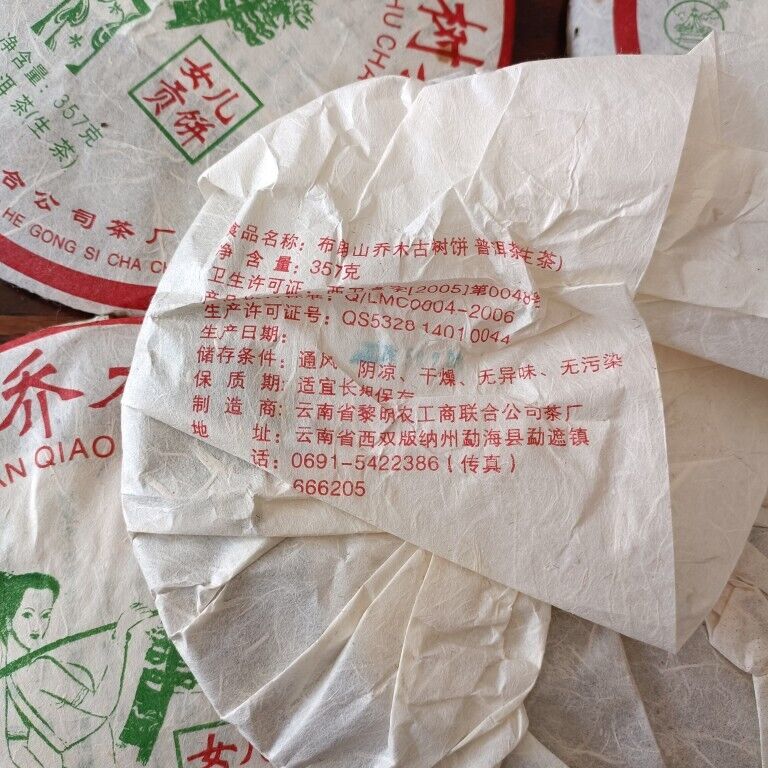 树
HU CHA
净含量:357克
洱茶(生茶)
女儿
贡饼
合公司茶厂
HE GONG SI CHA CH
品名称: 布朗山乔木古树饼 普洱茶(生茶)
净 含 量: 357克
卫生许可证 [2005]第0048号
Q/LMC0004-2006
生产许可证号: QS5328 1401 0044
生产日期:
储存条件: 通风、阴凉、干燥、无异味、无污染
保 质 期: 适宜长期保存
制 造 商: 云南省黎明农工商联合公司茶厂
地 址: 云南省西双版纳州勐海县勐遮镇
话: 0691-5422386(传真)
666205
乔
AN QIAO
女